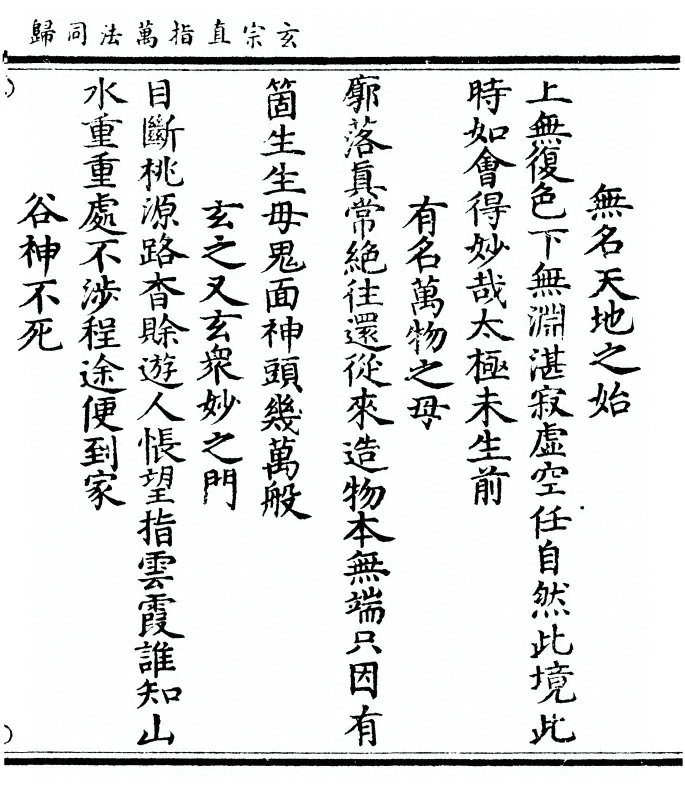 玄宗直指萬法同歸
無名天地之始
上無復色下無淵湛寂虛空任自然此境此
時如會得妙哉太極未生前
有名萬物之母
廓落真常絕往還從來造物本無端只因有
箇生生母鬼面神頭幾萬般
玄之又玄衆妙之門
目斷桃源路杳賒遊人悵望指雲霞誰知山
水重重處不涉程途便到家
谷神不死